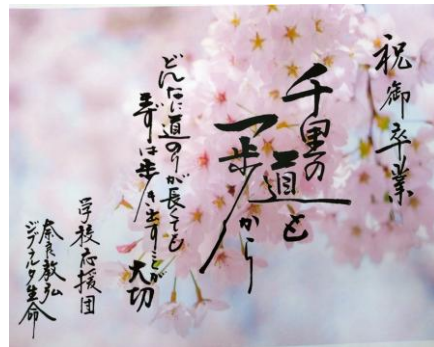 祝御卒業
千里の
道も
一歩から
どんなに道のりが長くても
まずは歩き出すことが
大切
学校応援団
奈良教弘
ジブラルタ生命